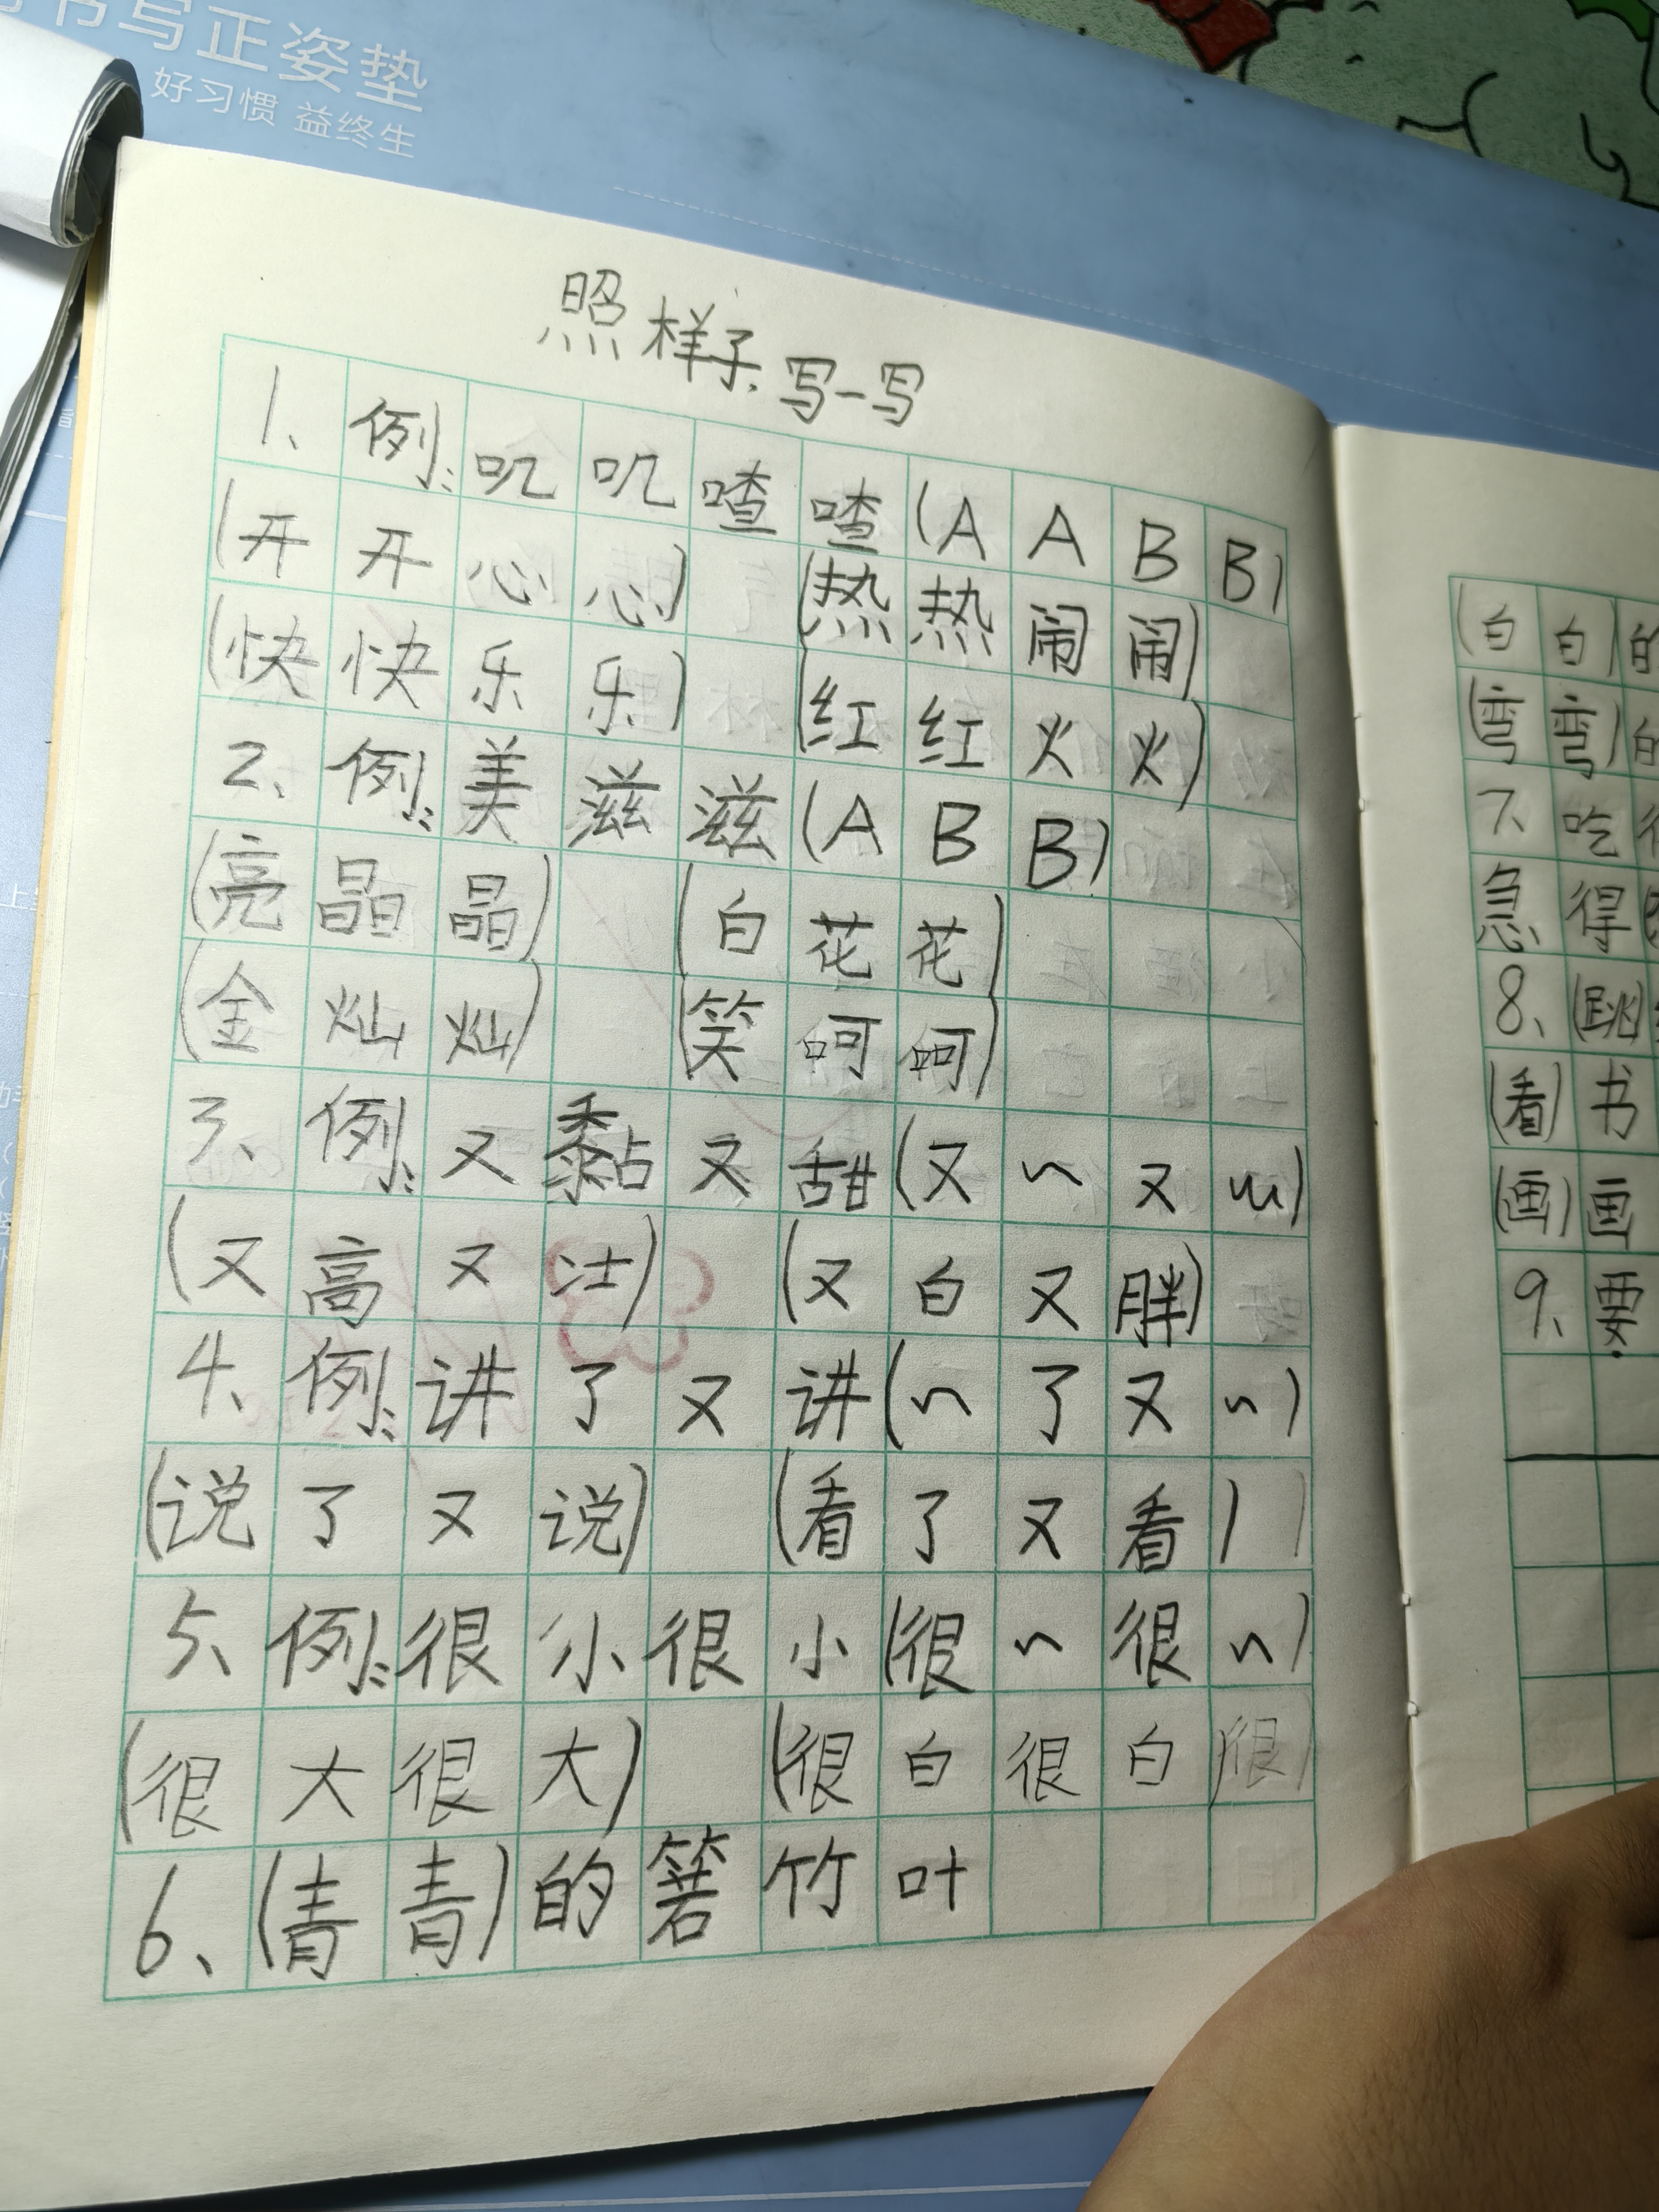 书写正姿垫
好习惯 益终生
照样子写一写
1、例:叽叽喳喳(AABB)
(开开心心) (热热闹闹)
(快快乐乐) (红红火火)
2、例:美滋滋(ABB)
(亮晶晶) (白花花)
(金灿灿) (笑呵呵)
3、例:又黏又甜(又~又~)
(又高又壮) (又白又胖)
4、例:讲了又讲(~了又~)
(说了又说) (看了又看)
5、例:很小很小(很~很~)
(很大很大) (很白很白)
6、(青青)的箬竹叶
(白白)的
(弯弯)的
7、吃得
急得
8、(跳)
(看)书
(画)画
9、要